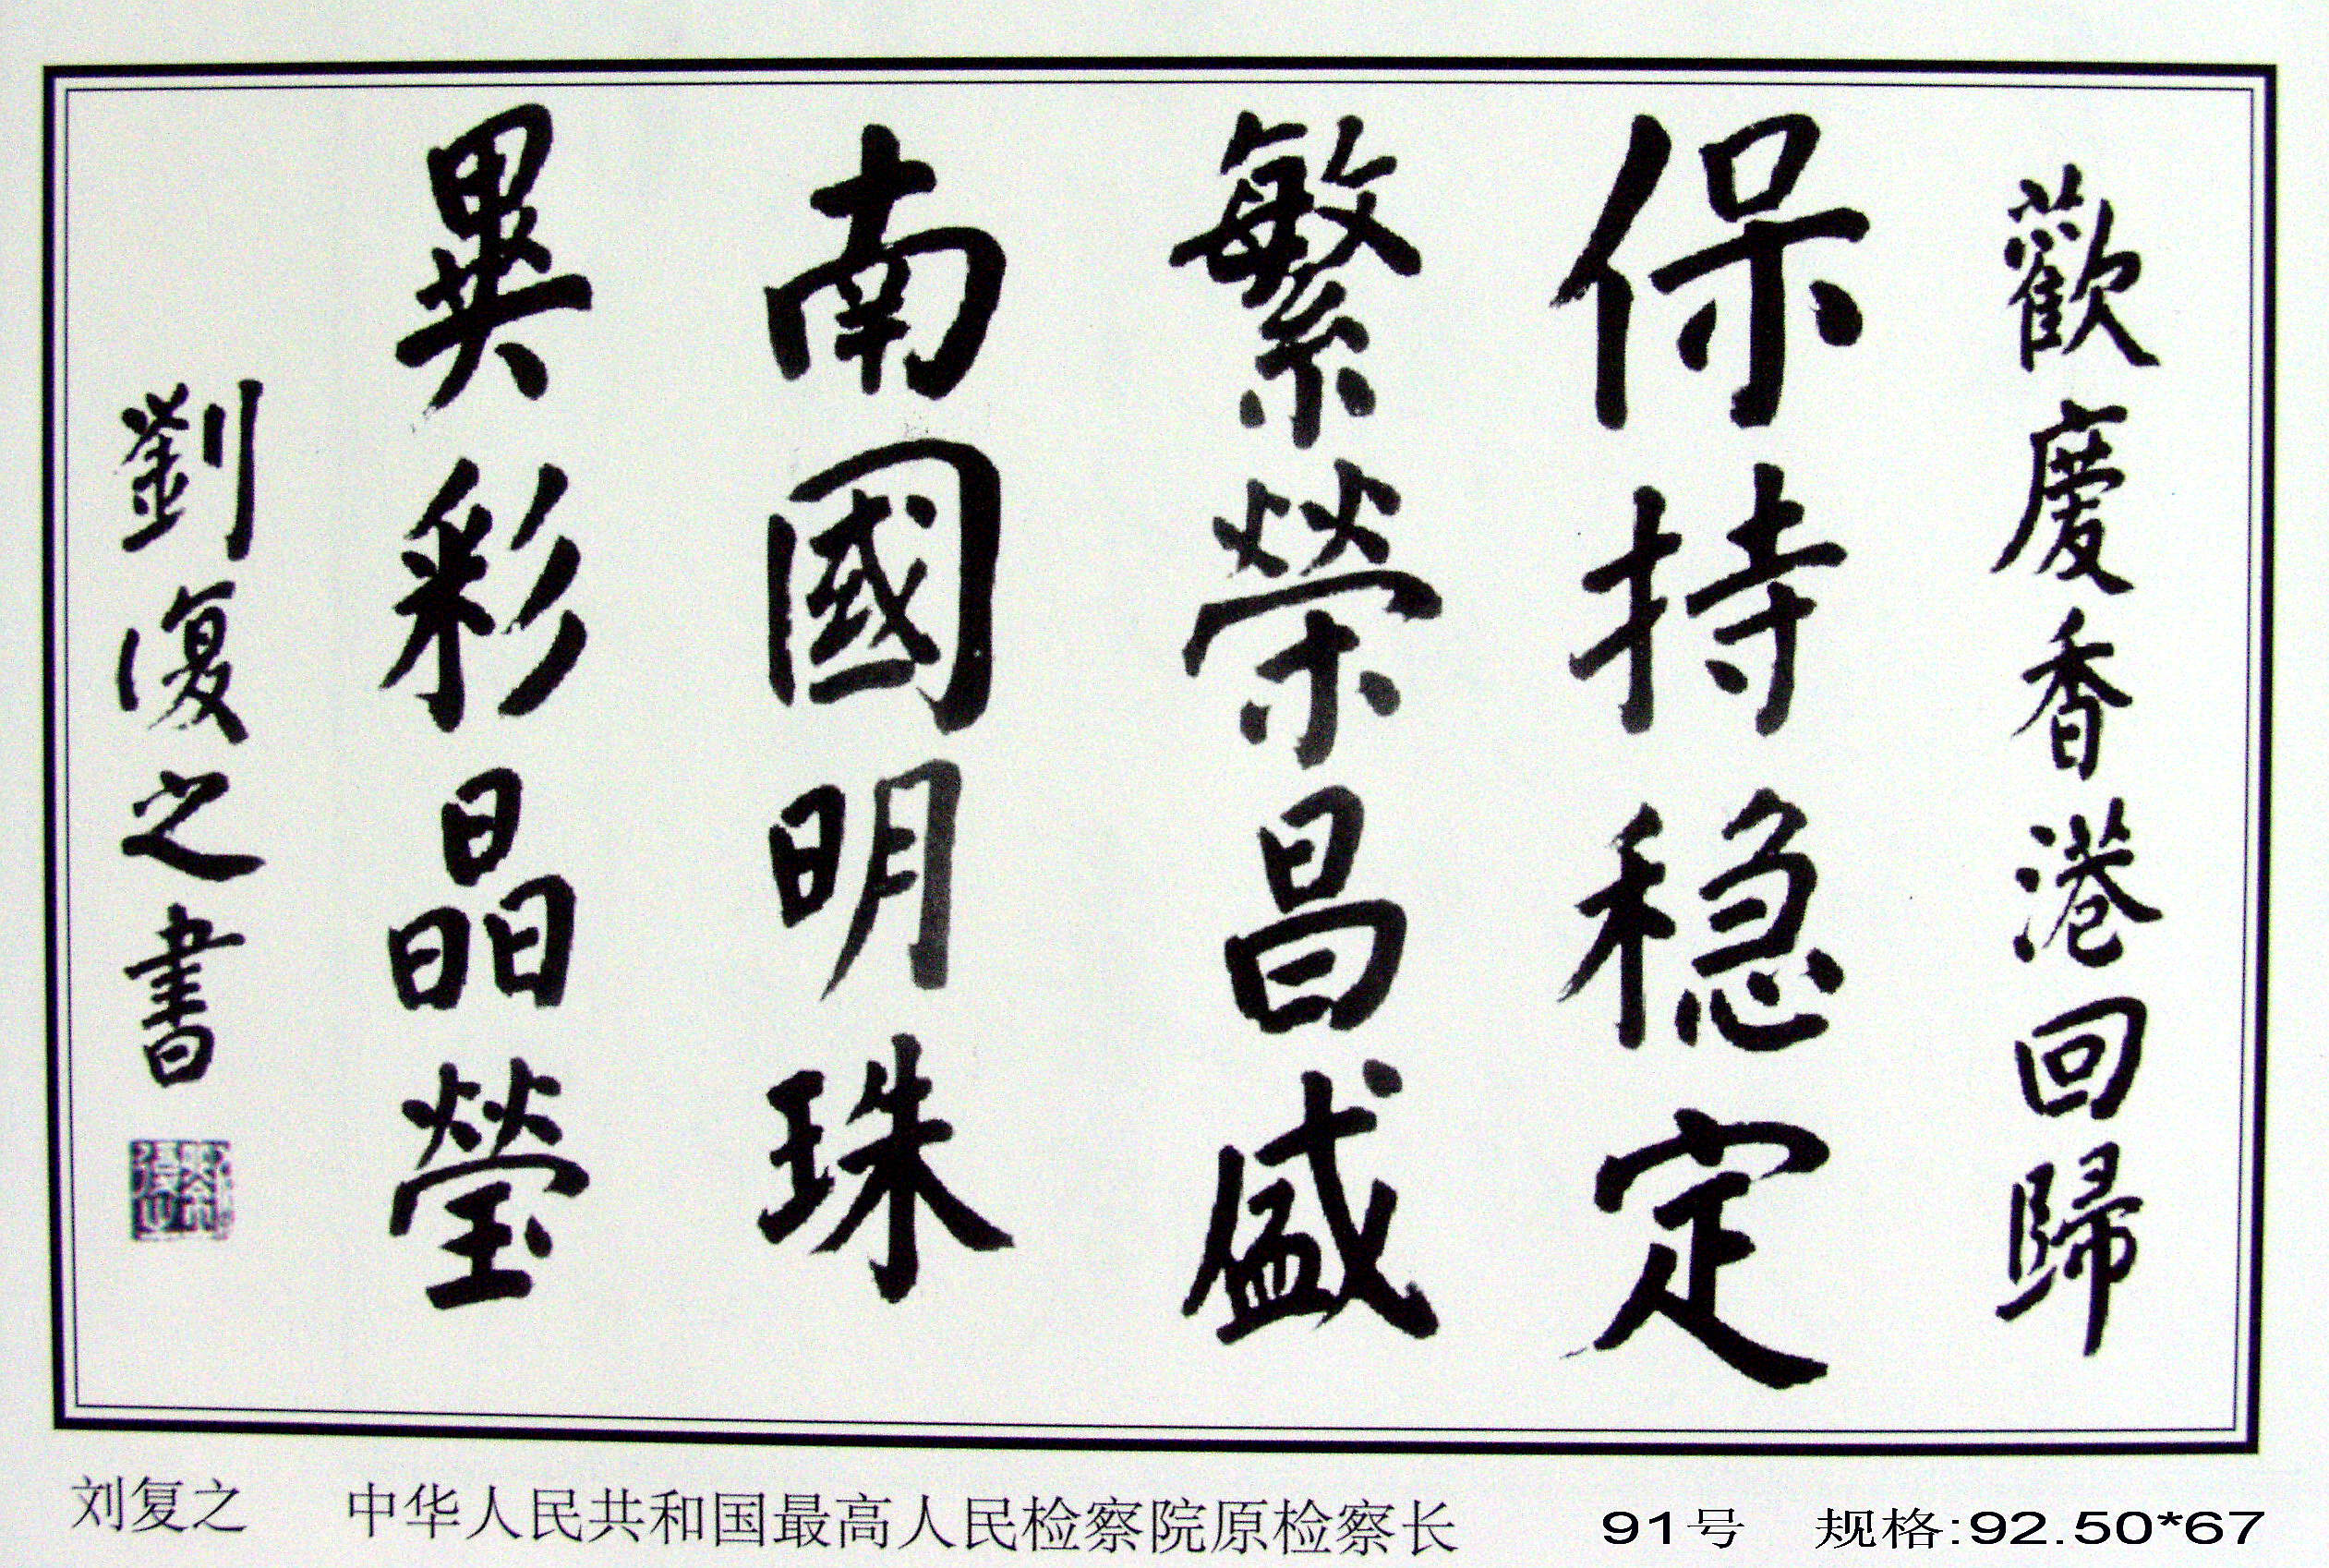 歡慶香港回歸
保持穩定
繁榮昌盛
南國明珠
異彩晶瑩
劉復之書
刘复之 中华人民共和国最高人民检察院原检察长 91号 规格:92.50*67